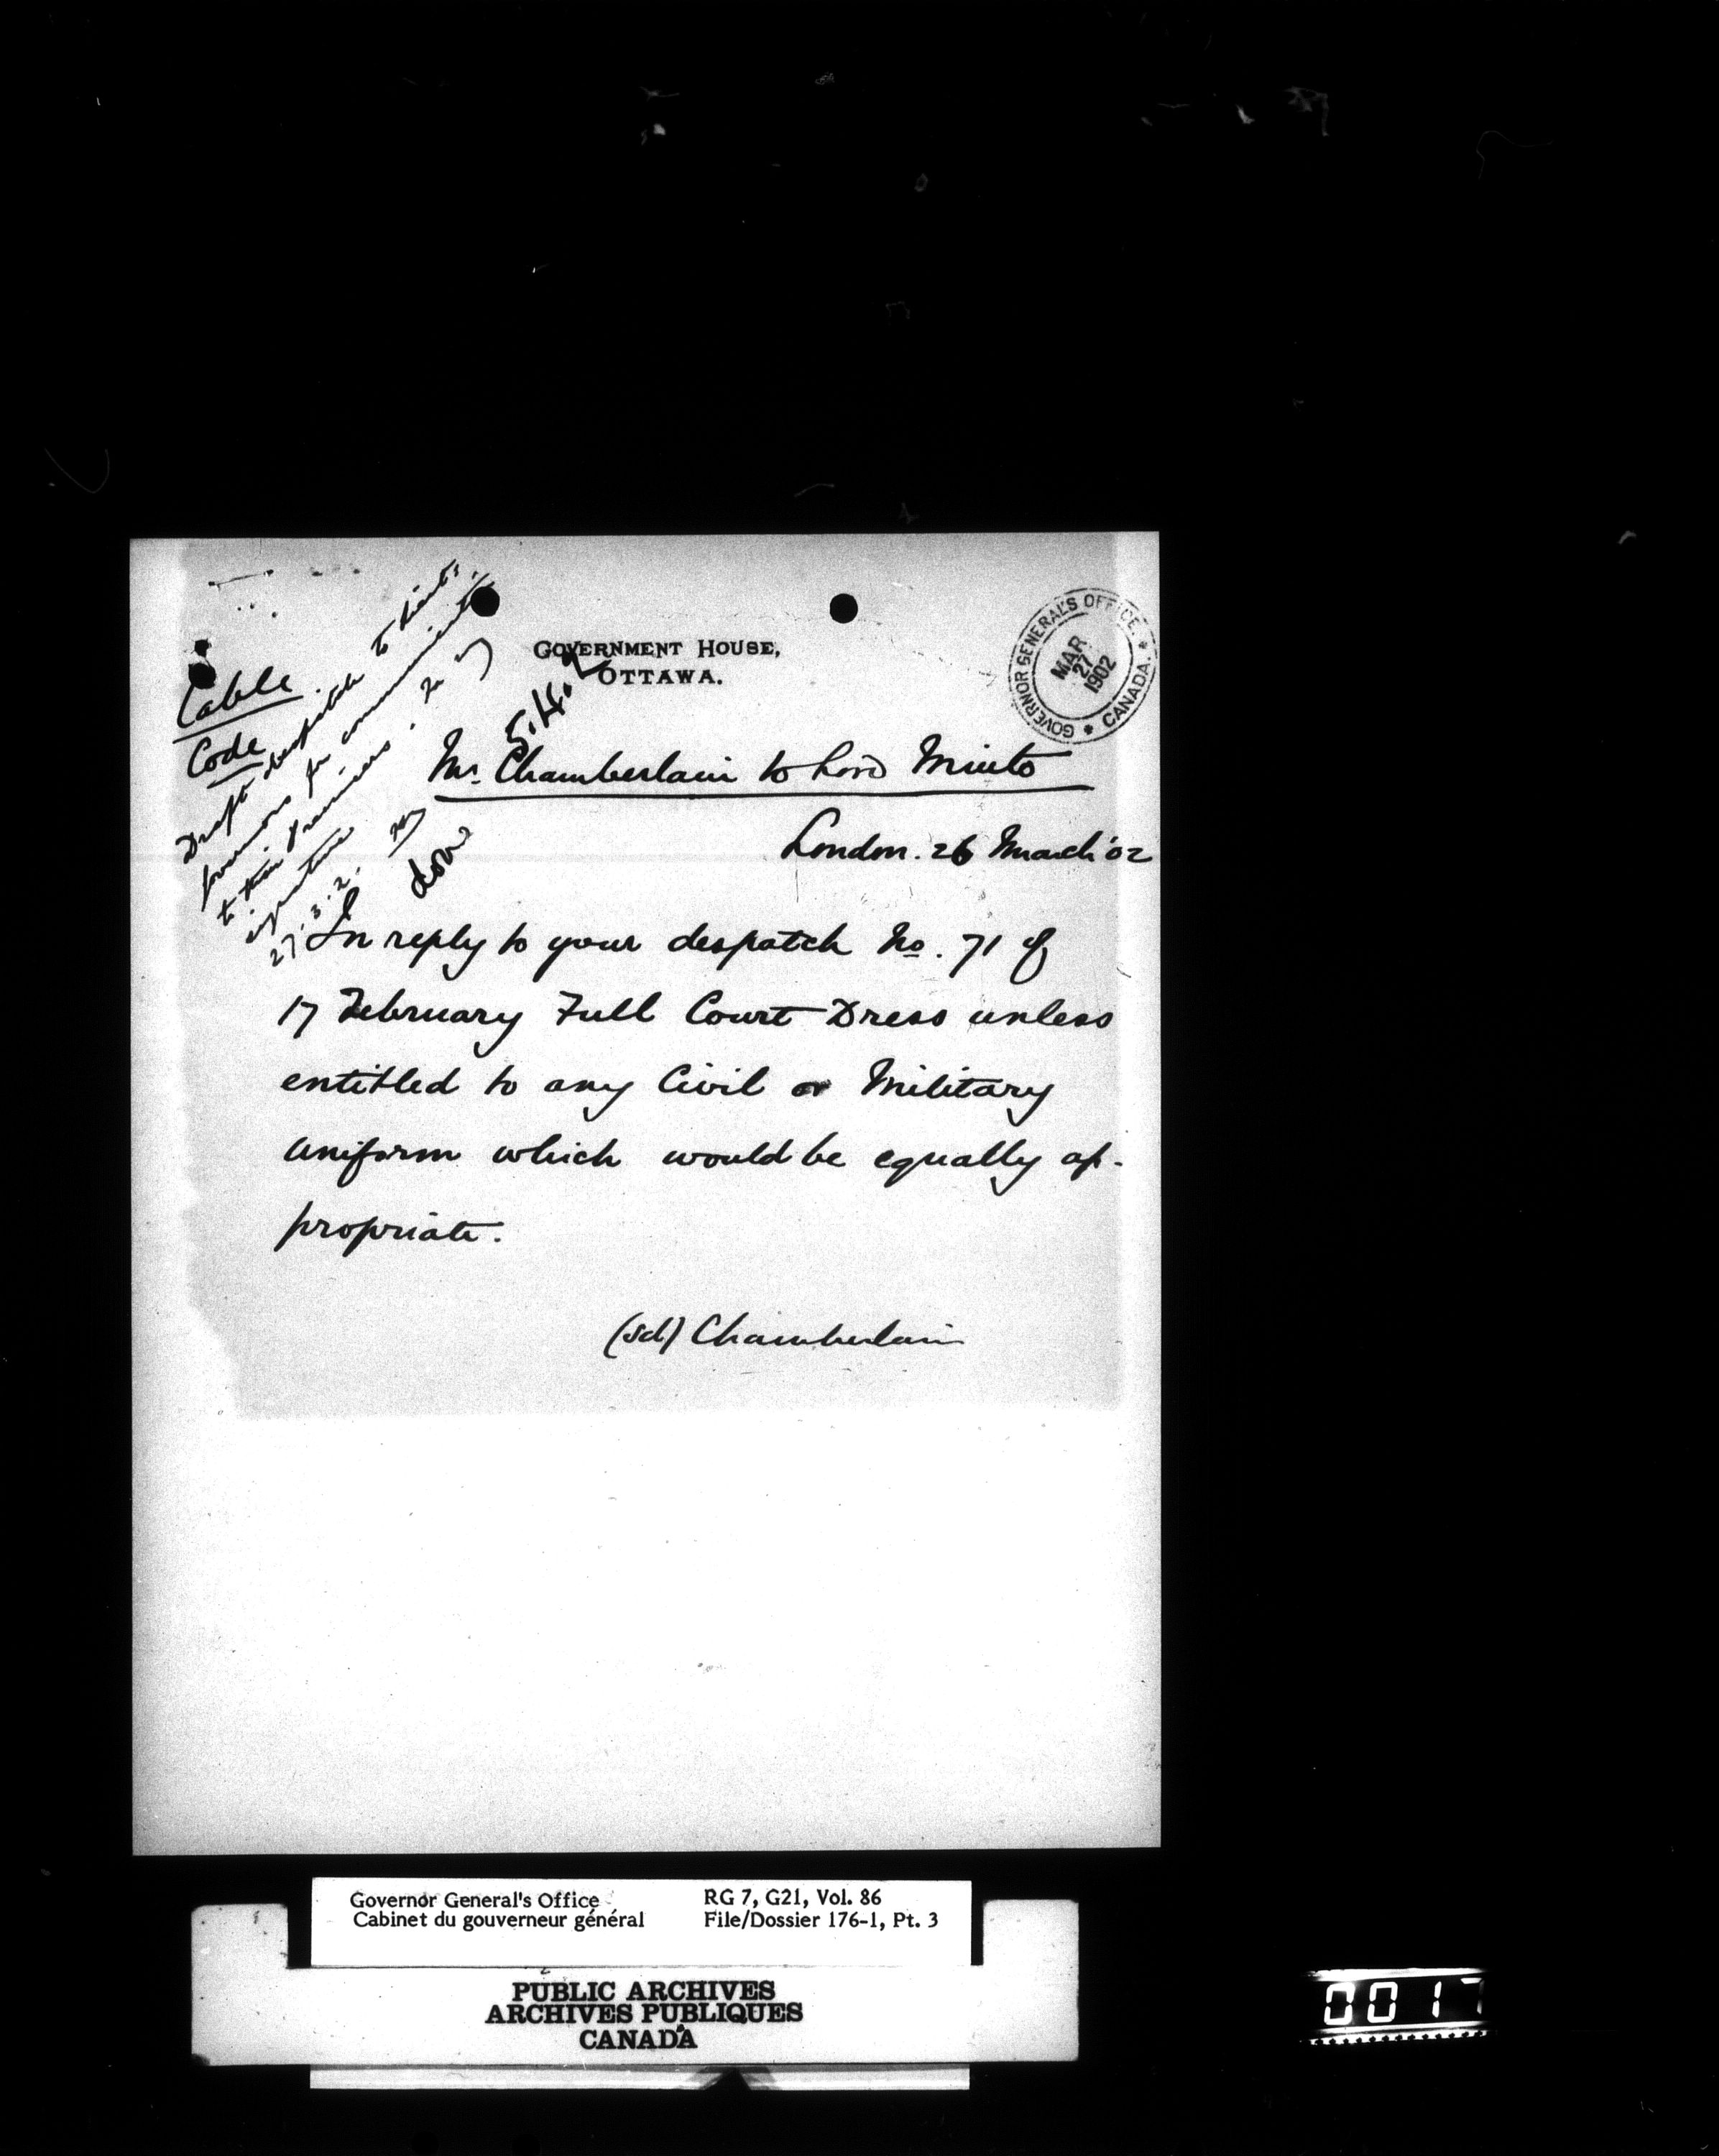 GOVERNMENT HOUSE,
OTTAWA.
GOVERNOR GENERAL'S OFFICE. * CANADA. *
MAR
27
1902
Cable
Code
Draft despatch to Lieut.
Governors for communication
to their Premiers.
signature
27.3.2.
done
5.4.2
Mr. Chamberlain to Lord Minto
London. 26 March '02
In reply to your despatch No. 71 of
17 February Full Court Dress unless
entitled to any Civil or Military
uniform which would be equally ap-
propriate.
(sd) Chamberlain
Governor General's Office
Cabinet du gouverneur général
RG 7, G21, Vol. 86
File/Dossier 176-1, Pt. 3
PUBLIC ARCHIVES
ARCHIVES PUBLIQUES
CANADA
0017